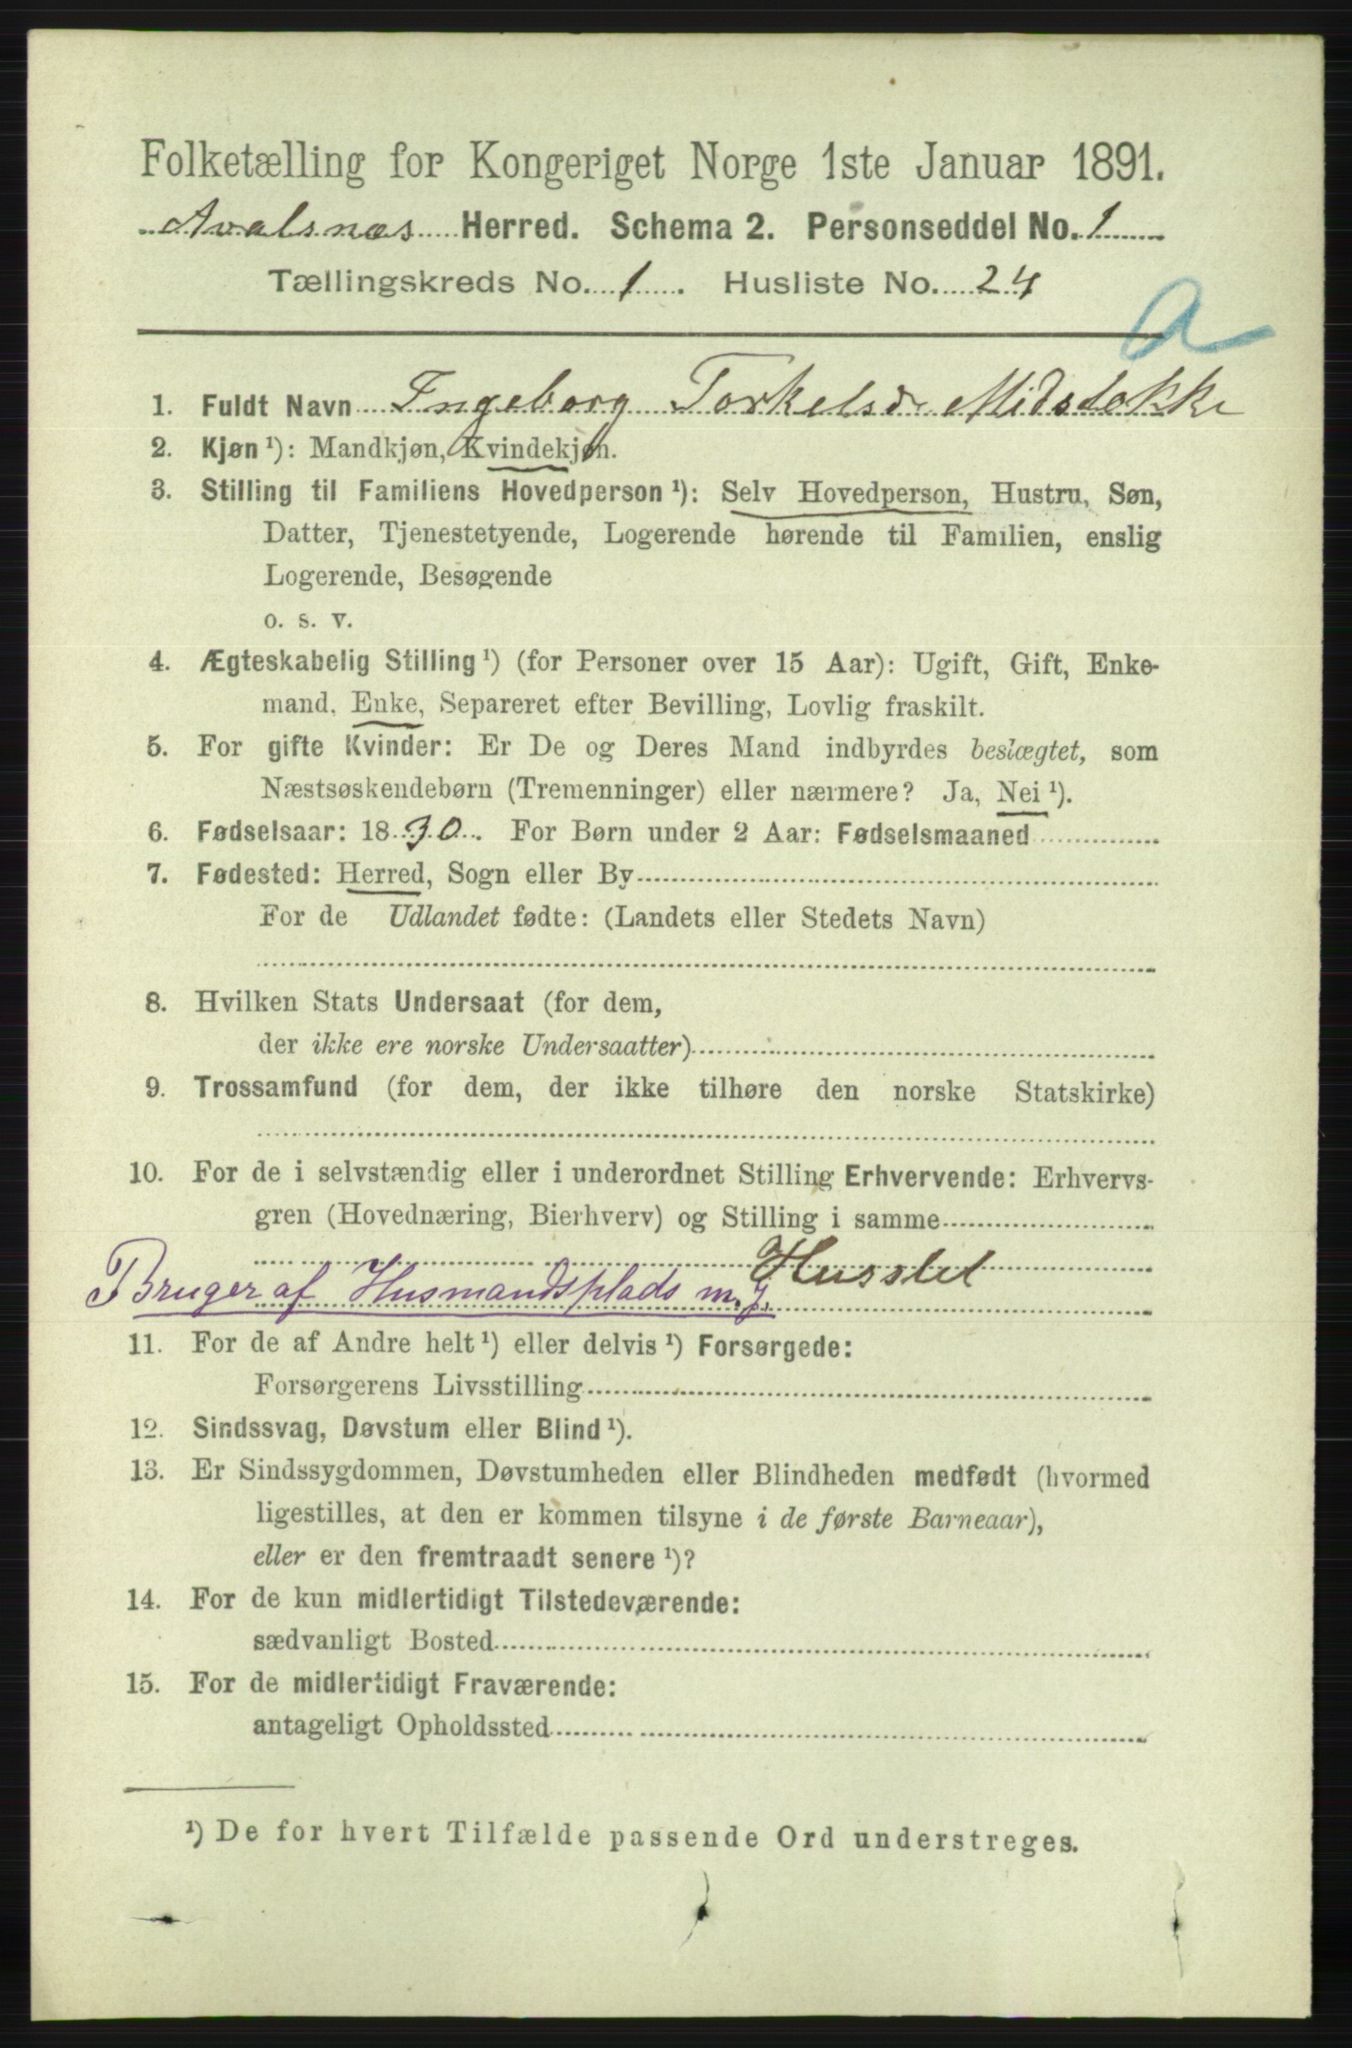 Folketælling for Kongeriget Norge 1ste Januar 1891.
Avalsnæs Herred. Schema 2. Personseddel No. 1
Tællingskreds No. 1. Husliste No. 24
a
1. Fuldt Navn Ingeborg Torkelsd. Midsløkke
2. Kjøn ¹): Mandkjøn, Kvindekjøn.
3. Stilling til Familiens Hovedperson ¹): Selv Hovedperson, Hustru, Søn,
Datter, Tjenestetyende, Logerende hørende til Familien, enslig
Logerende, Besøgende
o. s. v.
4. Ægteskabelig Stilling ¹) (for Personer over 15 Aar): Ugift, Gift, Enke-
mand, Enke, Separeret efter Bevilling, Lovlig fraskilt.
5. For gifte Kvinder: Er De og Deres Mand indbyrdes beslægtet, som
Næstsøskendebørn (Tremenninger) eller nærmere? Ja, Nei ¹).
6. Fødselsaar: 1830. For Børn under 2 Aar: Fødselsmaaned
7. Fødested: Herred, Sogn eller By
For de Udlandet fødte: (Landets eller Stedets Navn)
8. Hvilken Stats Undersaat (for dem,
der ikke ere norske Undersaatter)
9. Trossamfund (for dem, der ikke tilhøre den norske Statskirke)
10. For de i selvstændig eller i underordnet Stilling Erhvervende: Erhvervs-
gren (Hovednæring, Bierhverv) og Stilling i samme
Husstel
Bruger af Husmandsplads m. J.
11. For de af Andre helt ¹) eller delvis ¹) Forsørgede:
Forsørgerens Livsstilling
12. Sindssvag, Døvstum eller Blind ¹).
13. Er Sindssygdommen, Døvstumheden eller Blindheden medfødt (hvormed
ligestilles, at den er kommen tilsyne i de første Barneaar),
eller er den fremtraadt senere ¹)?
14. For de kun midlertidigt Tilstedeværende:
sædvanligt Bosted
15. For de midlertidigt Fraværende:
antageligt Opholdssted
¹) De for hvert Tilfælde passende Ord understreges.